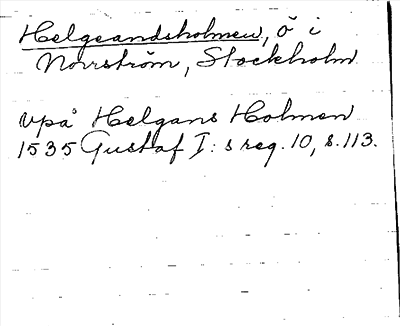 Helgeandsholmen, ö i
Norrström, Stockholm
vpå Helgans Holmen
1535 Gustaf I:s reg. 10, s. 113.